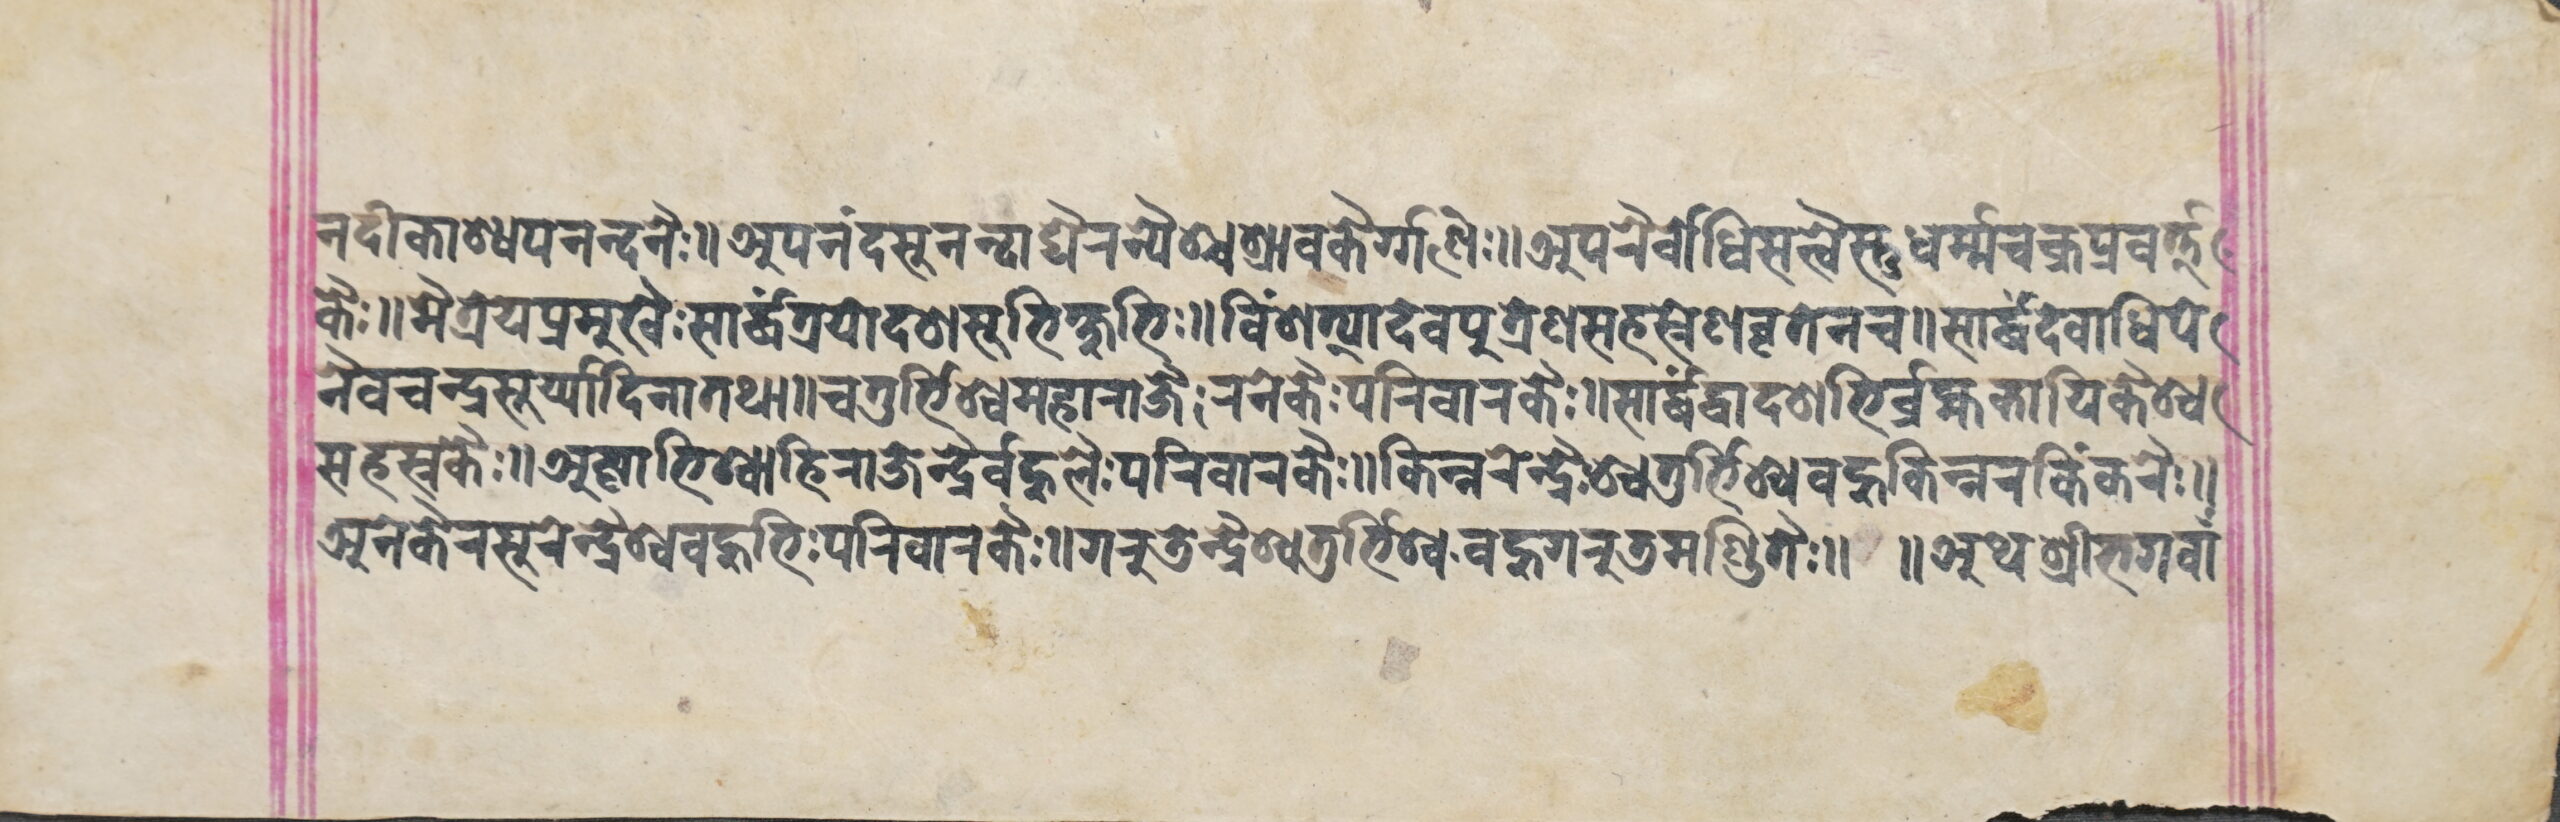 नदीकाश्यपनन्दनैः॥अपनंदसूनन्दाद्यैरन्यैश्चश्रावकैर्ग्गणैः॥अपरैर्बोधिसत्त्वैस्तुधर्म्मचक्रप्रवर्त्तु
कैः॥मैत्रेयप्रमुखैःसार्द्धंत्रयोदशसूभिक्षुभिः॥विंशत्यादेवपुत्रेणसहस्रेणवृतेनच॥सार्द्धंदेवाधिपे
नैवचन्द्रसूर्य्यादिनातथा॥चतुर्भिश्चमहाराजैःरनेकैःपरिवारकैः॥सार्द्धंद्वादशभिर्व्रह्मकायिकैश्च
सहस्रकैः॥अष्टाभिश्चाहिराजेन्द्रैर्वहुलैःपरिवारकैः॥किन्नरेन्द्रैःश्चतुर्भिश्चवहुकिन्नरकिंकरैः॥
अनेकैरसूरेन्द्रैश्चवहुभिःपरिवारकैः॥गरुडेन्द्रैश्चतुर्भिश्चवहुगरुडमण्डितैः॥ ॥अथश्रीभगवां